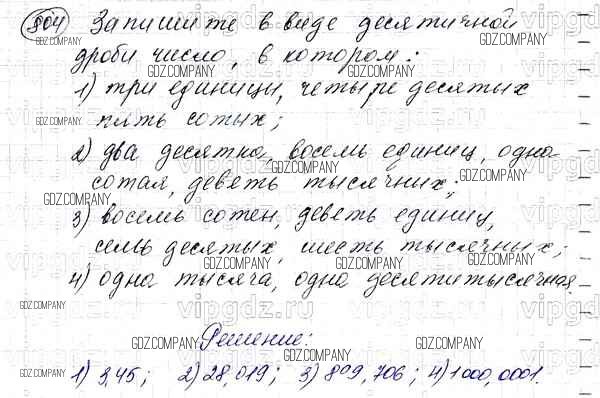 804 Запишите в виде десятичной
дроби число, в котором:
1) три единицы, четыре десятых
пять сотых;
2) два десятка, восемь единиц, одна
сотая, девять тысячных;
3) восемь сотен, девять единиц,
семь десятых, шесть тысячных;
4) одна тысяча, одна десятитысячная.
Решение:
1) 3,45; 2) 28,019; 3) 809,706; 4) 1000,0001.